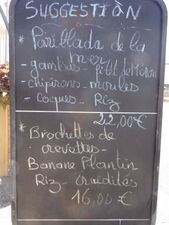 SUGGESTION
* Parillada de la
mer
- gambas - filet de
- chipirons - moules
- coques - Riz
22,00€
* Brochettes de
crevettes -
Banane Plantin
Riz - crudités
16,00€